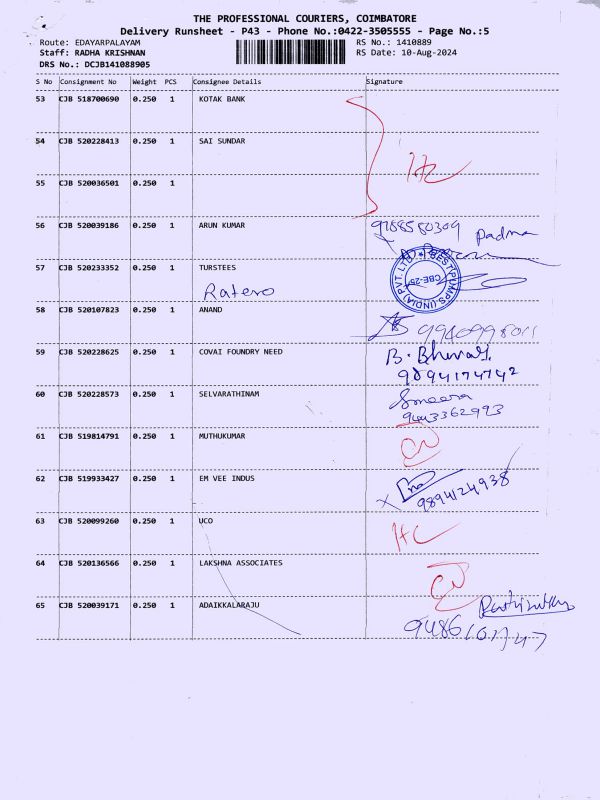 THE PROFESSIONAL COURIERS, COIMBATORE
Delivery Runsheet - P43 - Phone No.:0422-3505555 - Page No.:5
Route: EDAYARPALAYAM RS No.: 1410889
Staff: RADHA KRISHNAN RS Date: 10-Aug-2024
DRS No.: DCJB141088905
S No Consignment No Weight PCS Consignee Details Signature
53 CJB 518700690 0.250 1 KOTAK BANK
54 CJB 520228413 0.250 1 SAI SUNDAR
55 CJB 520036501 0.250 1
56 CJB 520039186 0.250 1 ARUN KUMAR 9788580309 Padma
57 CJB 520233352 0.250 1 TURSTEES BEST PUMPS (INDIA) PVT. LTD. CBE-25
Ratero
58 CJB 520107823 0.250 1 ANAND
59 CJB 520228625 0.250 1 COVAI FOUNDRY NEED
9894174742
60 CJB 520228573 0.250 1 SELVARATHINAM Smeera
9443362993
61 CJB 519814791 0.250 1 MUTHUKUMAR
62 CJB 519933427 0.250 1 EM VEE INDUS 9894124938
63 CJB 520099260 0.250 1 UCO
64 CJB 520136566 0.250 1 LAKSHNA ASSOCIATES
65 CJB 520039171 0.250 1 ADAIKKALARAJU